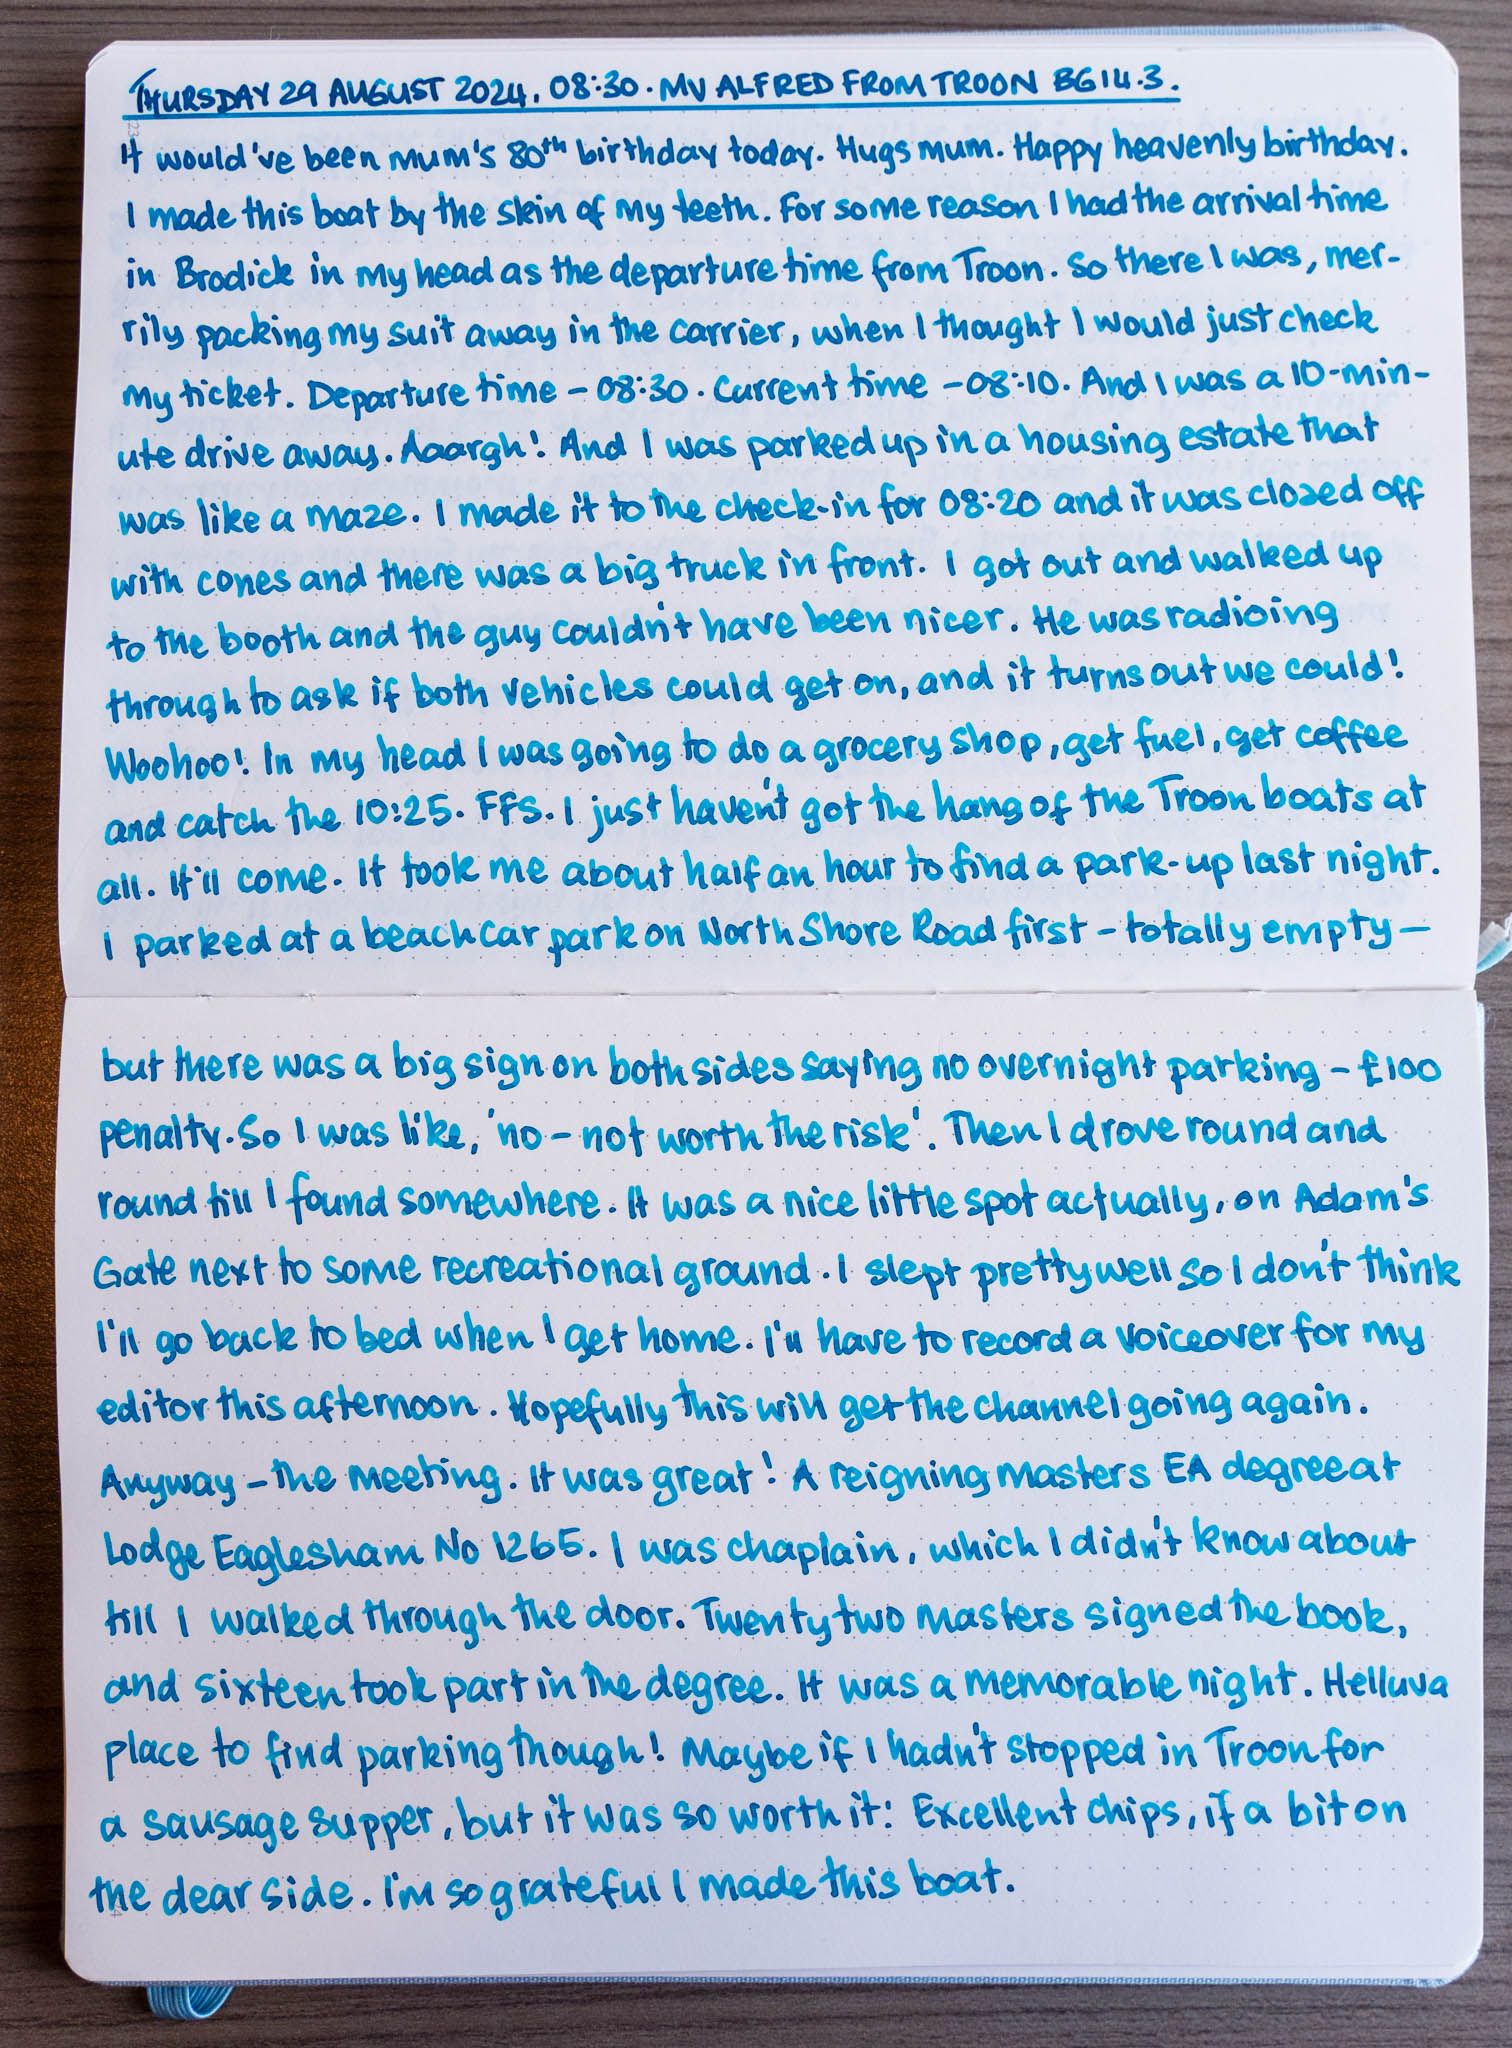 THURSDAY 29 AUGUST 2024. 08:30. MV ALFRED FROM TROON BG 14.3.
It would've been mum's 80th birthday today. Hugs mum. Happy heavenly birthday.
I made this boat by the skin of my teeth. For some reason I had the arrival time
in Brodick in my head as the departure time from Troon. So there I was, mer-
rily packing my suit away in the carrier, when I thought I would just check
my ticket. Departure time - 08:30. Current time - 08:10. And I was a 10-min-
ute drive away. Aaargh! And I was parked up in a housing estate that
was like a maze. I made it to the check-in for 08:20 and it was closed off
with cones and there was a big truck in front. I got out and walked up
to the booth and the guy couldn't have been nicer. He was radioing
through to ask if both vehicles could get on, and it turns out we could!
Woohoo! In my head I was going to do a grocery shop, get fuel, get coffee
and catch the 10:25. FFS. I just haven't got the hang of the Troon boats at
all. It'll come. It took me about half an hour to find a park-up last night.
I parked at a beach car park on North Shore Road first - totally empty -
but there was a big sign on both sides saying no overnight parking - £100
penalty. So I was like, 'no - not worth the risk'. Then I drove round and
round till I found somewhere. It was a nice little spot actually, on Adam's
Gate next to some recreational ground. I slept pretty well so I don't think
I'll go back to bed when I get home. I'll have to record a voiceover for my
editor this afternoon. Hopefully this will get the channel going again.
Anyway - the meeting. It was great! A reigning masters EA degree at
Lodge Eaglesham No 1265. I was chaplain, which I didn't know about
till I walked through the door. Twenty two masters signed the book,
and sixteen took part in the degree. It was a memorable night. Helluva
place to find parking though! Maybe if I hadn't stopped in Troon for
a sausage supper, but it was so worth it! Excellent chips, if a bit on
the dear side. I'm so grateful I made this boat.